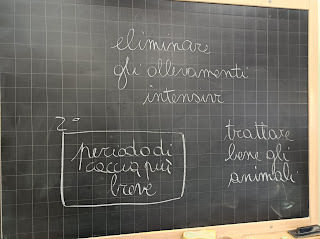 eliminare
gli allevamenti
intensivi
2°
periodo di
caccia più
breve
trattare
bene gli
animali